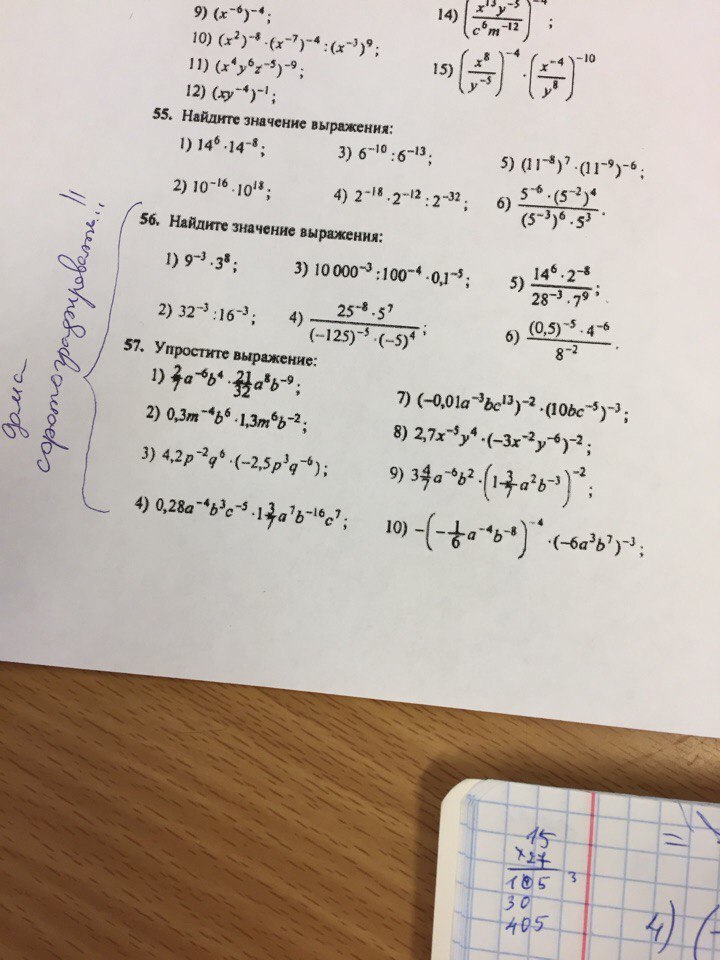 9) (x⁻⁶)⁻⁴;
10) (x²)⁻⁸·(x⁻⁷)⁻⁴:(x⁻³)⁹;
11) (x⁴y⁶z⁻⁵)⁻⁹;
12) (xy⁻⁴)⁻¹;
14) (x¹³y⁻⁵/c⁶m⁻¹²)⁻⁴;
15) (x⁸/y⁻⁵)⁻⁴·(x⁻⁴/y⁸)⁻¹⁰
55. Найдите значение выражения:
1) 14⁶·14⁻⁸;
3) 6⁻¹⁰:6⁻¹³;
5) (11⁻⁸)⁷·(11⁻⁹)⁻⁶;
2) 10⁻¹⁶·10¹⁸;
4) 2⁻¹⁸·2⁻¹²:2⁻³²;
6) 5⁻⁶·(5⁻²)⁴/(5⁻³)⁶·5³.
56. Найдите значение выражения:
1) 9⁻³·3⁸;
3) 10 000⁻³:100⁻⁴·0,1⁻⁵;
5) 14⁶·2⁻⁸/28⁻³·7⁹;
2) 32⁻³:16⁻³;
4) 25⁻⁸·5⁷/(−125)⁻⁵·(−5)⁴;
6) (0,5)⁻⁵·4⁻⁶/8⁻².
57. Упростите выражение:
1) 2/7a⁻⁶b⁴·21/32a⁸b⁻⁹;
2) 0,3m⁻⁴b⁶·1,3m⁶b⁻²;
3) 4,2p⁻²q⁶·(−2,5p³q⁻⁶);
4) 0,28a⁻⁴b³c⁻⁵·1 3/7a⁷b⁻¹⁶c⁷;
7) (−0,01a⁻³bc¹³)⁻²·(10bc⁻⁵)⁻³;
8) 2,7x⁻⁵y⁴·(−3x⁻²y⁻⁶)⁻²;
9) 3 4/7a⁻⁶b²·(1 3/7a²b⁻³)⁻²;
10) −(−1/6a⁻⁴b⁻⁸)⁻⁴·(−6a³b⁷)⁻³;
дома
сфотографировать..!!
15
×27
105 3
30
405
=
4) (−